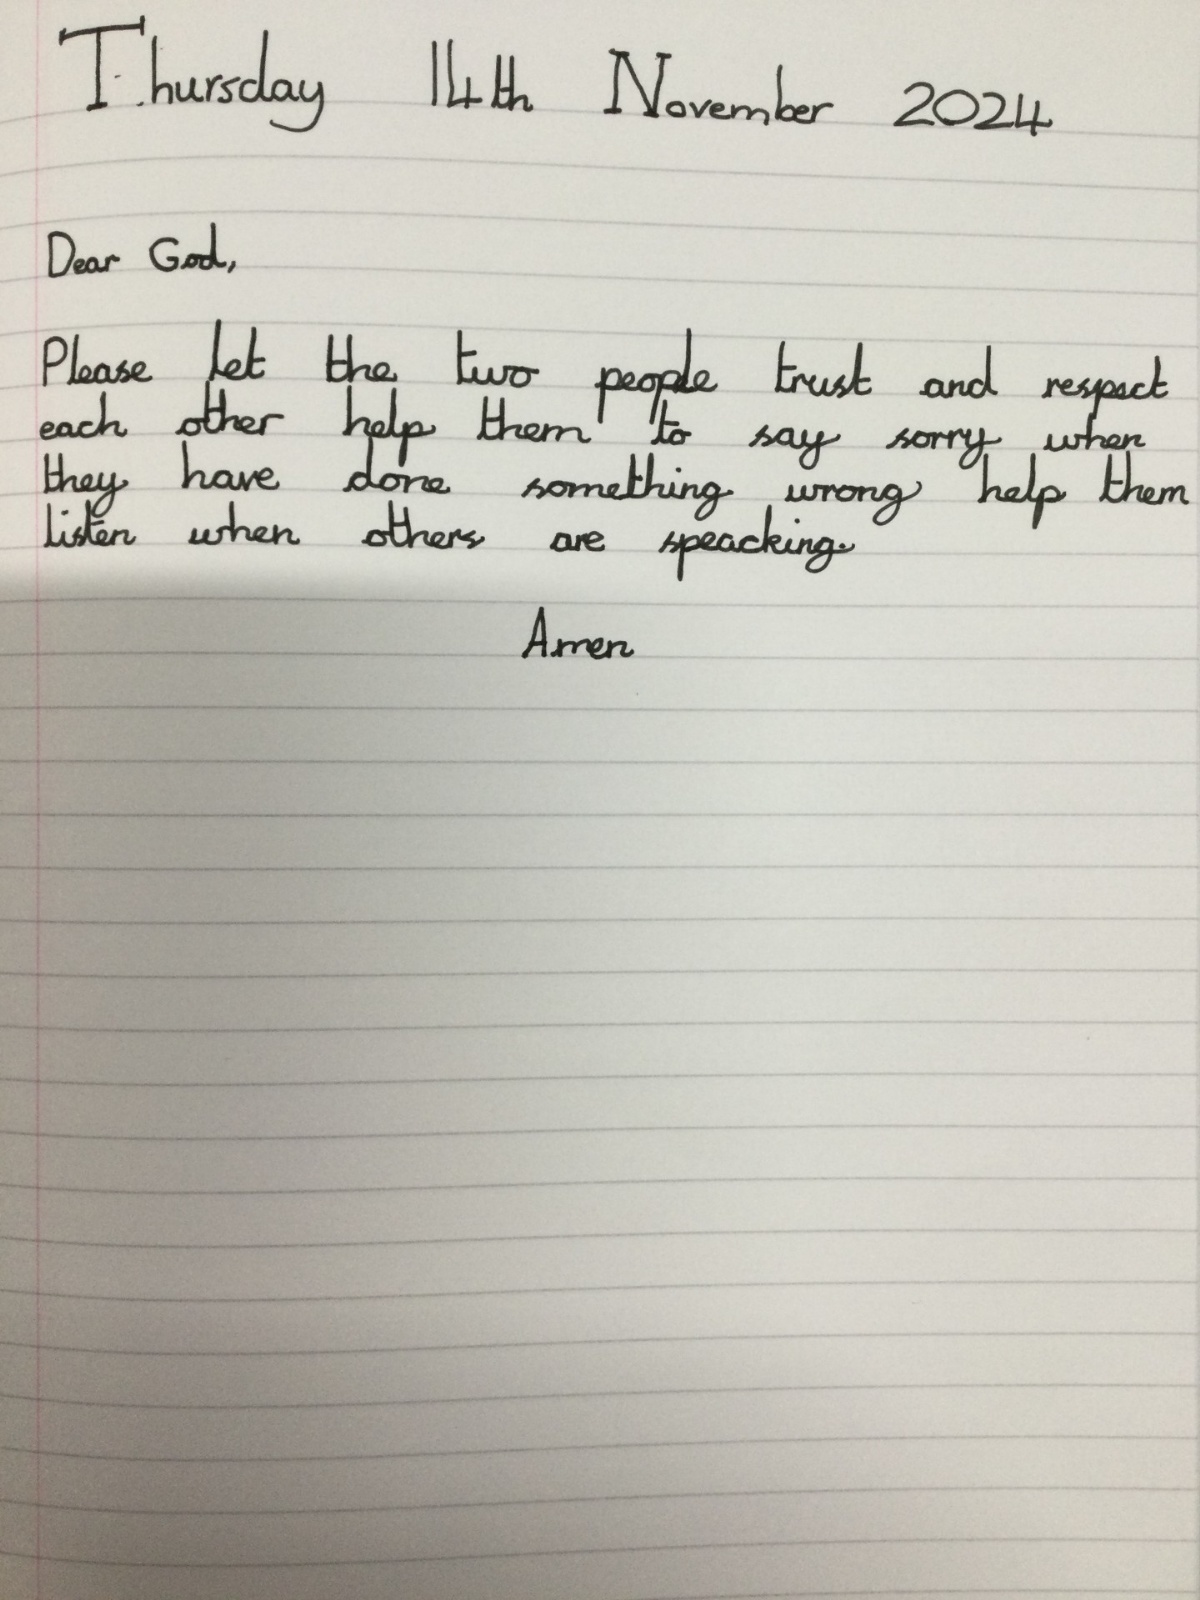 Thursday 14th November 2024
Dear God,
Please let the two people trust and respect
each other help them to say sorry when
they have done something wrong help them
listen when others are speacking.
Amen